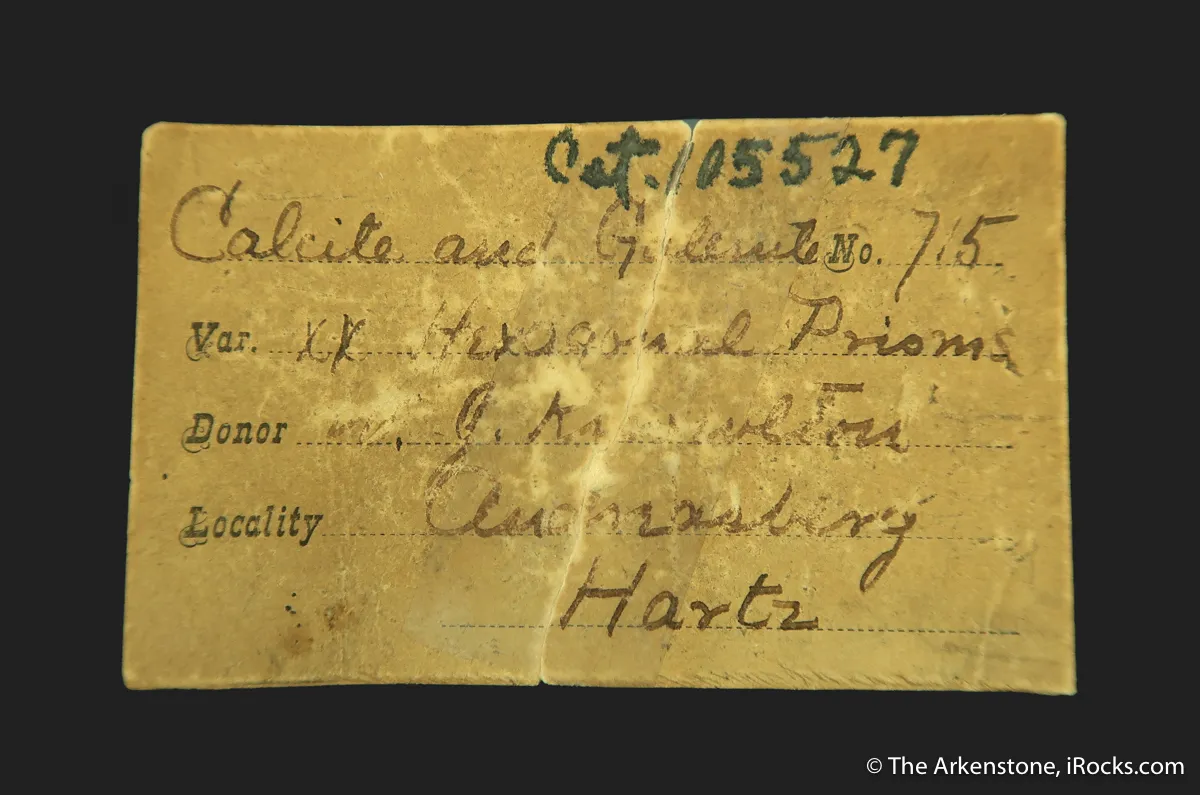 Cat. 105527
Calcite and Galenite No. 715
Var. XX Hexagonal Prisms
Donor J.
Locality
Hartz
© The Arkenstone, iRocks.com